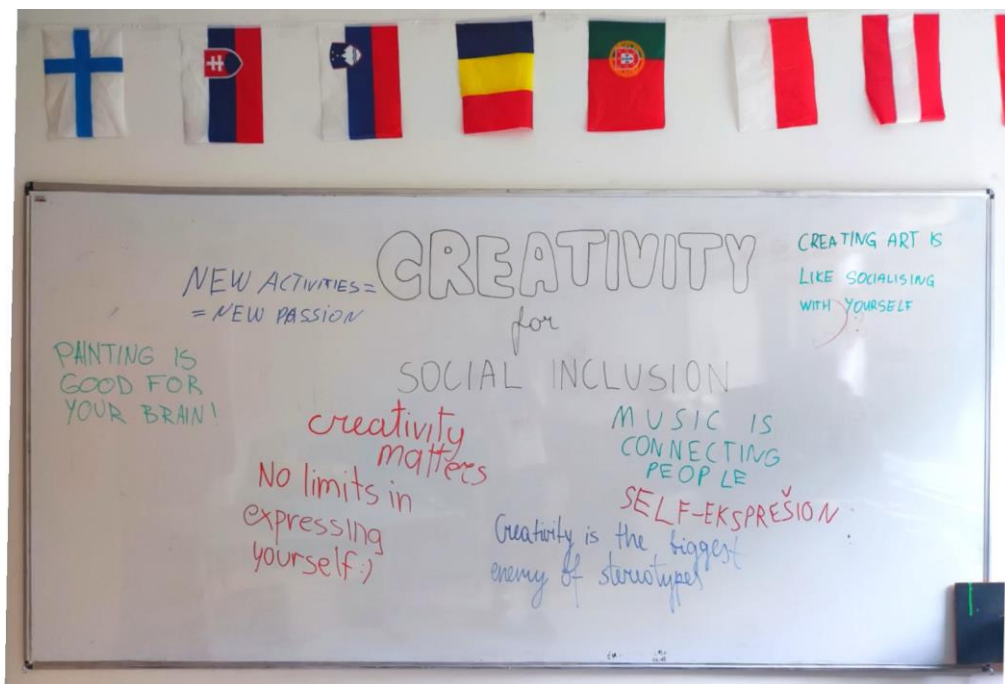 CREATIVITY
for
SOCIAL INCLUSION
NEW ACTIVITIES=
= NEW PASSION
CREATING ART IS
LIKE SOCIALISING
WITH YOURSELF
PAINTING IS
GOOD FOR
YOUR BRAIN!
creativity
matters
MUSIC IS
CONNECTING
PEOPLE
No limits in
expressing
yourself:)
SELF-EKSPREŠION
Creativity is the biggest
enemy of stereotypes